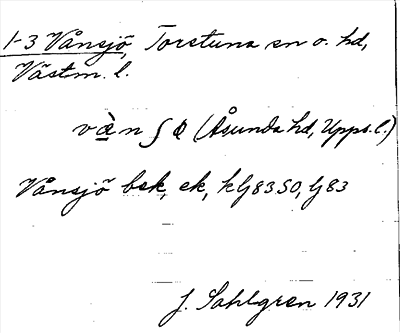 1-3 Vånsjö, Torstuna sn o. hd,
Västm. l.
(Åsunda hd, Upps. l.)
Vånsjö bsk, ek, hfj 83 SO, fj 83
J. Sahlgren 1931